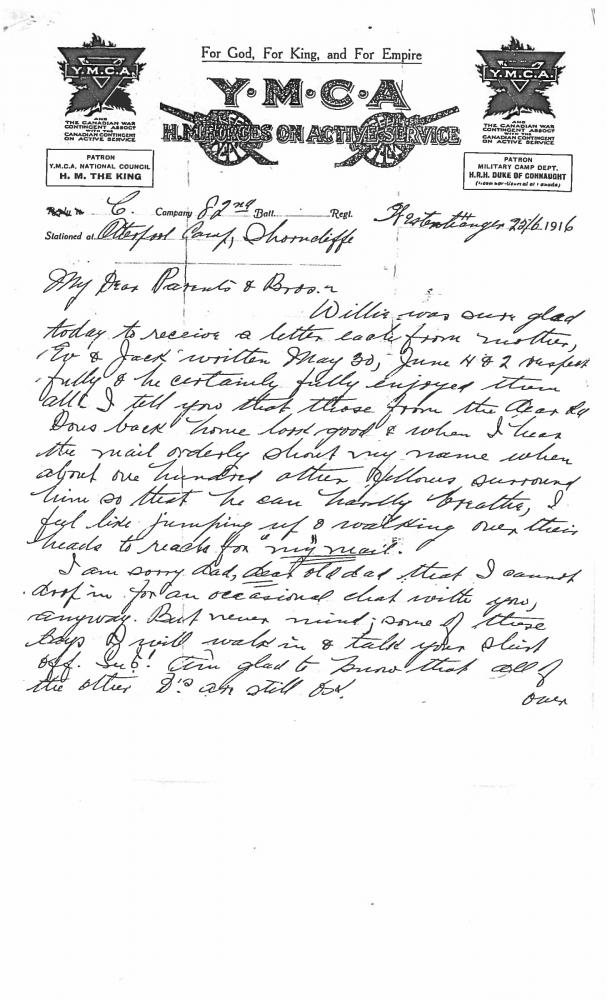 For God, For King, and For Empire
Y·M·C·A
H.M. FORCES ON ACTIVE SERVICE
Y.M.C.A.
AND
THE CANADIAN WAR
CONTINGENT ASSOCT
WITH THE
CANADIAN CONTINGENT
ON ACTIVE SERVICE
PATRON
Y.M.C.A. NATIONAL COUNCIL
H. M. THE KING
Y.M.C.A.
AND
THE CANADIAN WAR
CONTINGENT ASSOCT
WITH THE
CANADIAN CONTINGENT
ON ACTIVE SERVICE
PATRON
MILITARY CAMP DEPT.
H.R.H. DUKE OF CONNAUGHT
C. Company 82nd Batt. Regt. 25/6 1916
Stationed at Otterpool Camp, Shorncliffe
My Dear Parents & Bros.
Willie was sure glad
today to receive a letter each from mother,
Ev & Jack written May 30, June 4 & 2 respect
fully & he certainly fully enjoyed them
all. I tell you that those from the dear
back home look good & when I hear
the mail orderly shout my name when
about one hundred other fellows surround
him so that he can hardly breathe, I
feel like jumping up & walking over their
heads to reach for "my mail".
I am sorry Dad, dear old dad that I cannot
drop in for an occasional chat with you,
anyway. But never mind; some of these
days I will walk in & talk your shirt
off. Am glad to know that all of
the other D's are still O.K.
over